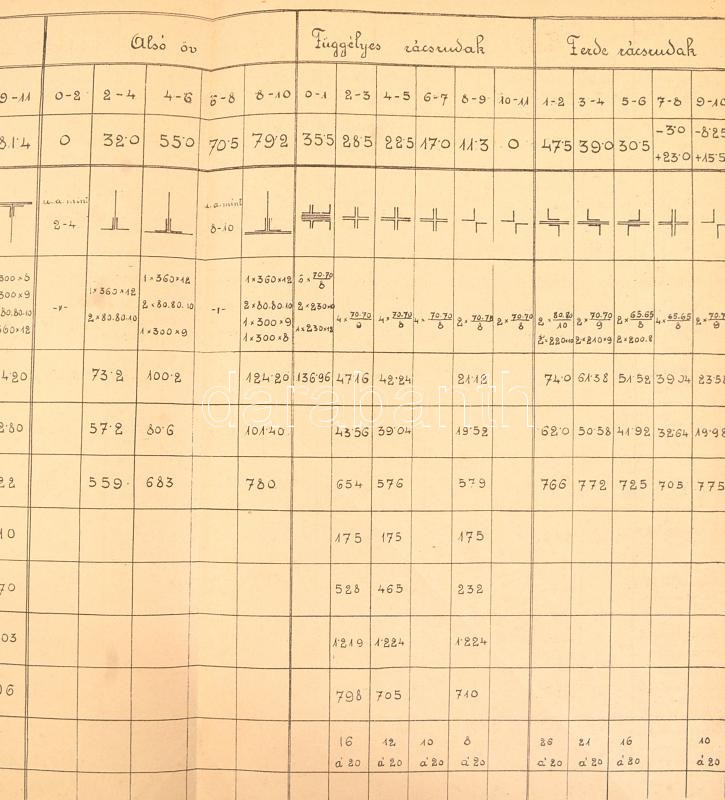 Alsó öv Függélyes rácsrudak Ferde rácsrudak
9-11 0-2 2-4 4-6 6-8 8-10 0-1 2-3 4-5 6-7 8-9 10-11 1-2 3-4 5-6 7-8 9-10
81.4 0 32.0 55.0 70.5 79.2 35.5 28.5 22.5 17.0 11.3 0 47.5 39.0 30.5 -3.0 -8.25
+23.0 +15.5
u.a.mint u.a.mint
2-4 8-10
300×8 1×360×12 1×360×12 1×360×12 8×70.70/8
300×9 2×80.80.10 2×80.80.10 2×80.80.10 2×230×10
80.80.10 1×300×9 1×300×9 1×230×12 4×70.70/9 4×70.70/8 4×70.70/8 2×70.70/8 2×70.70/8 2×80.80/10 2×70.70/9 2×65.65/8 4×65.65/8
360×12 1×300×8 2×220×10 2×210×9 2×200.8
4.20 73.2 100.2 124.20 136.96 47.16 42.24 21.12 74.0 61.38 51.52 39.04 23.58
2.80 57.2 80.6 101.40 43.56 39.04 19.52 62.0 50.58 41.92 32.64 19.98
22 559. 683 780 654 576 579 766 772 725 705 775
10 175 175 175
70 528 465 232
03 1.219 1.224 1.224
06 798 705 710
16 12 10 8 26 21 16 10
á 20 á 20 á 20 á 20 á 20 á 20 á 20 á 20
darabanth